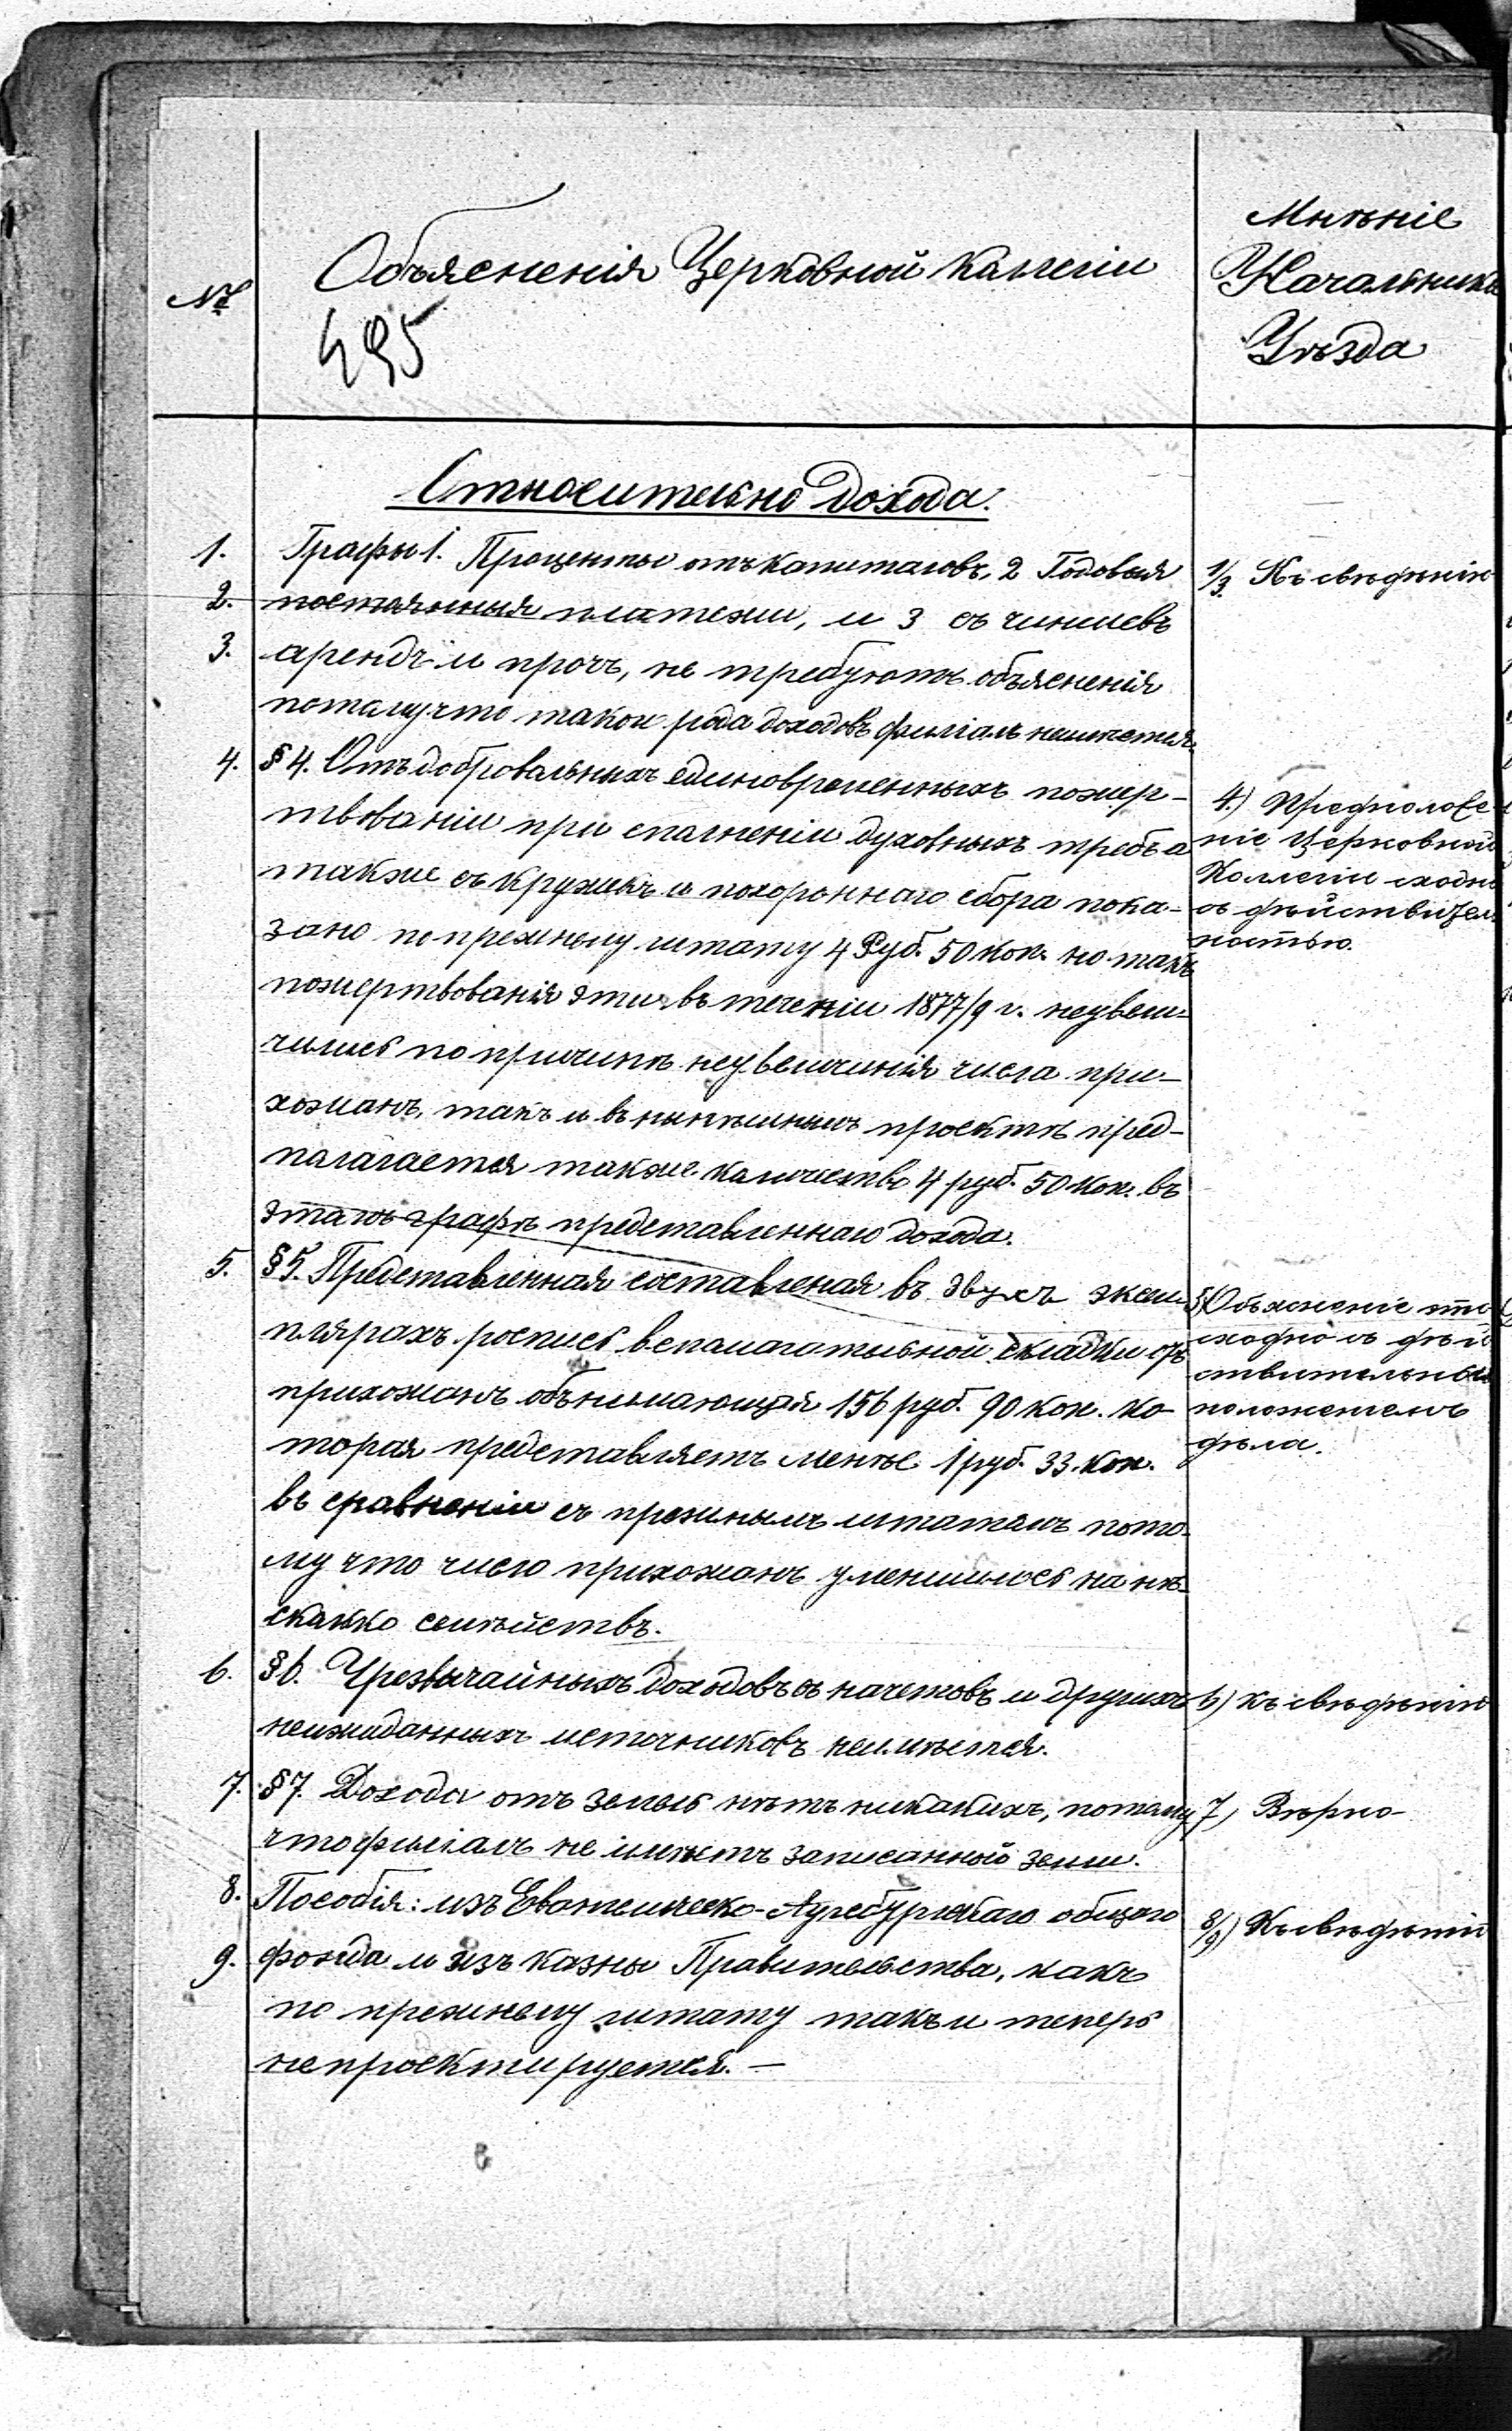 №
Объясненія Церковной Каллегіи
495
Мнѣніе
Начальника
Уѣзда
Относительно дохода.
1. Графы 1. Проценты отъ капиталовъ, 2 Годовыя
2. постаянныя платежи, и 3 съ чиншевъ
3. арендъ и проч, не требуютъ объясненія
потамучто такои рода доходовъ филіалъ неимѣетъ.
1/3. Къ свѣдѣнію
4. § 4. Отъ добровальныхъ единовременныхъ пожер-
твованіи при спалненіи духовныхъ требъ а
также съ кружекъ и похороннаго сбора пока-
зано по прежнему штату 4 Руб. 50 коп. но такъ
пожертвованія эти въ теченіи 1877/9 г. неувели-
чились по причинѣ неувеличинія числа при-
хожанъ, такъ и въ нынѣшнымъ проектѣ пред-
палагается также каличество 4 руб. 50 коп. въ
этамъ графѣ представленнаго дохода.
4.) Предположе-
ніе Церковной
Коллегіи сходно
съ дѣйствител-
ностью.
5. § 5. Представленная составленая въ двухъ экзем-
плярахъ роспись вспамогательной складки отъ
прихожанъ обънимающая 156 руб. 90 коп. ко-
торая представляетъ менѣе 1 руб. 33. коп.
въ сравненіи съ прежнымъ штатамъ пото-
му что число прихожанъ уменшилось на нѣ-
скалко семѣйствъ.
5) Объясненіе это
сходно съ дѣй
ствительным
положеніемъ
дѣла.
6. § 6. Чрезвычайныхъ доходовъ съ начетовъ и другихъ
неижиданныхъ источниковъ неимѣется.
6) къ свѣдѣнію
7. § 7. Дохода отъ земль нѣтъ никакихъ, потаму
чтофиліалъ не имѣетъ записанной земли.
7) Вѣрно-
8. Пособія: изъ Евангелическо-Аугсбургскаго общаго
9. фонда и изъ казны Правительства, какъ
по прежнему штату такъ и теперь
непроектируется. —
8/9) Къ свѣдѣнію